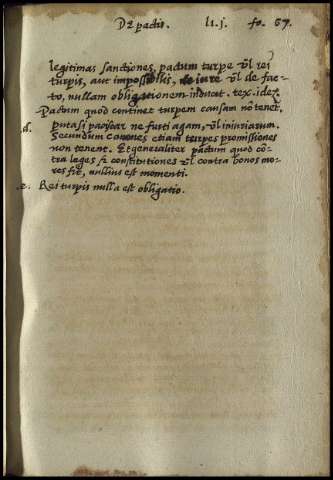 De pactis. li. j. fo. 67.
legitimas sanctiones, pactum turpe vl rei
turpis, aut impossibilis, de iure vl de fac-
to, nullam obligationem inducat. tex. ide.
Pactum quod continet turpem causam nō tenet.
d. puta si paciscar ne furti agam, vl iniuriarum.
Secundum Canones etiam turpes promissiones
non tenent. Et generaliter pactum quod cō-
tra leges fi constitutiones vl contra bonos mo-
res fit, nullius est momenti.
e. Rei turpis nulla est obligatio.